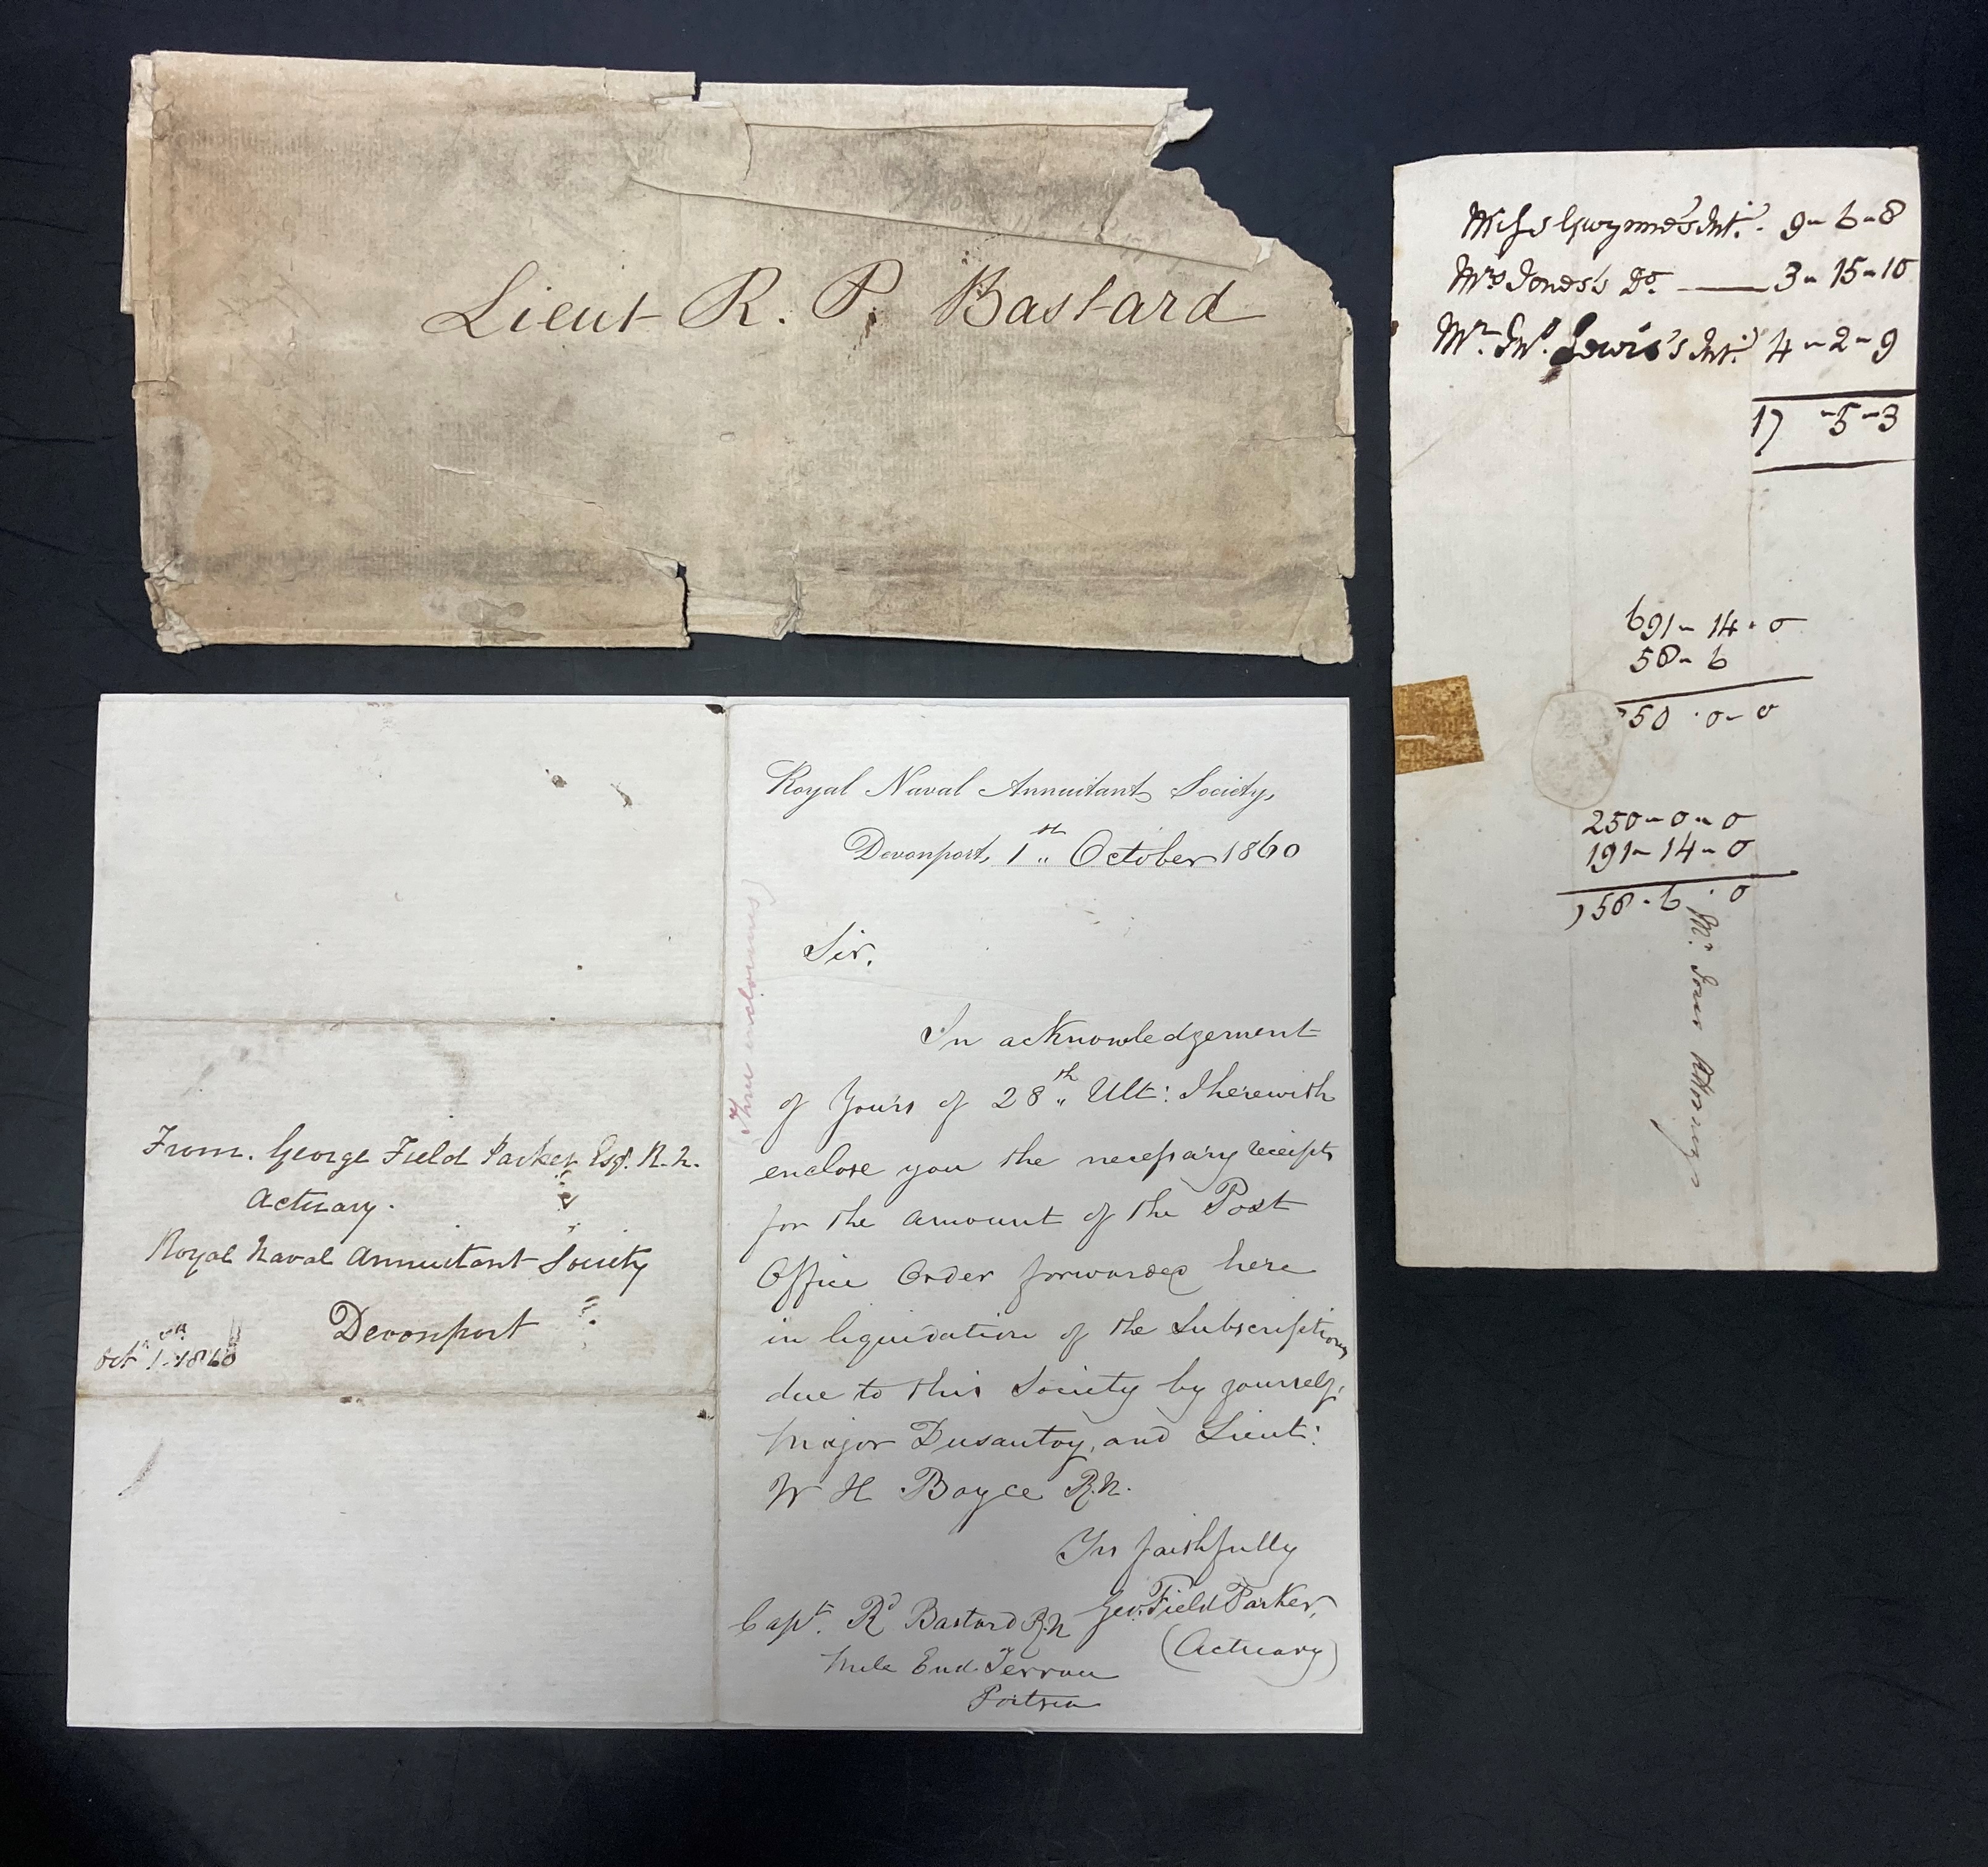 Lieut R. P. Bastard
Miss Gwynne's Int. 9-6-8
Mrs Jones's Do. — 3-15-10
Mr. Jno. Lewis's Int. 4-2-9
17-5-3
691-14-0
58-6
750-0-0
250-0-0
191-14-0
58-6-0
Mr.
From. George Field Parker Esqr. R.N.
Actuary.
Royal Naval Annuitant Society
Devonport
Oct 1. 1860
Royal Naval Annuitant Society,
Devonport, 1st October 1860
(Three enclosures)
Sir,
In acknowledgement
of Yours of 28th Ult: I herewith
enclose you the necessary receipts
for the amount of the Post
Office Order forwarded here
in liquidation of the Subscriptions
due to this Society by yourself,
Major Dusautoy, and Lieut:
W H Boyce R.N.
Yrs faithfully
Geo: Field Parker,
(Actuary)
Capt. Rd Bastard R.N
Mile End Terrace
Portsea